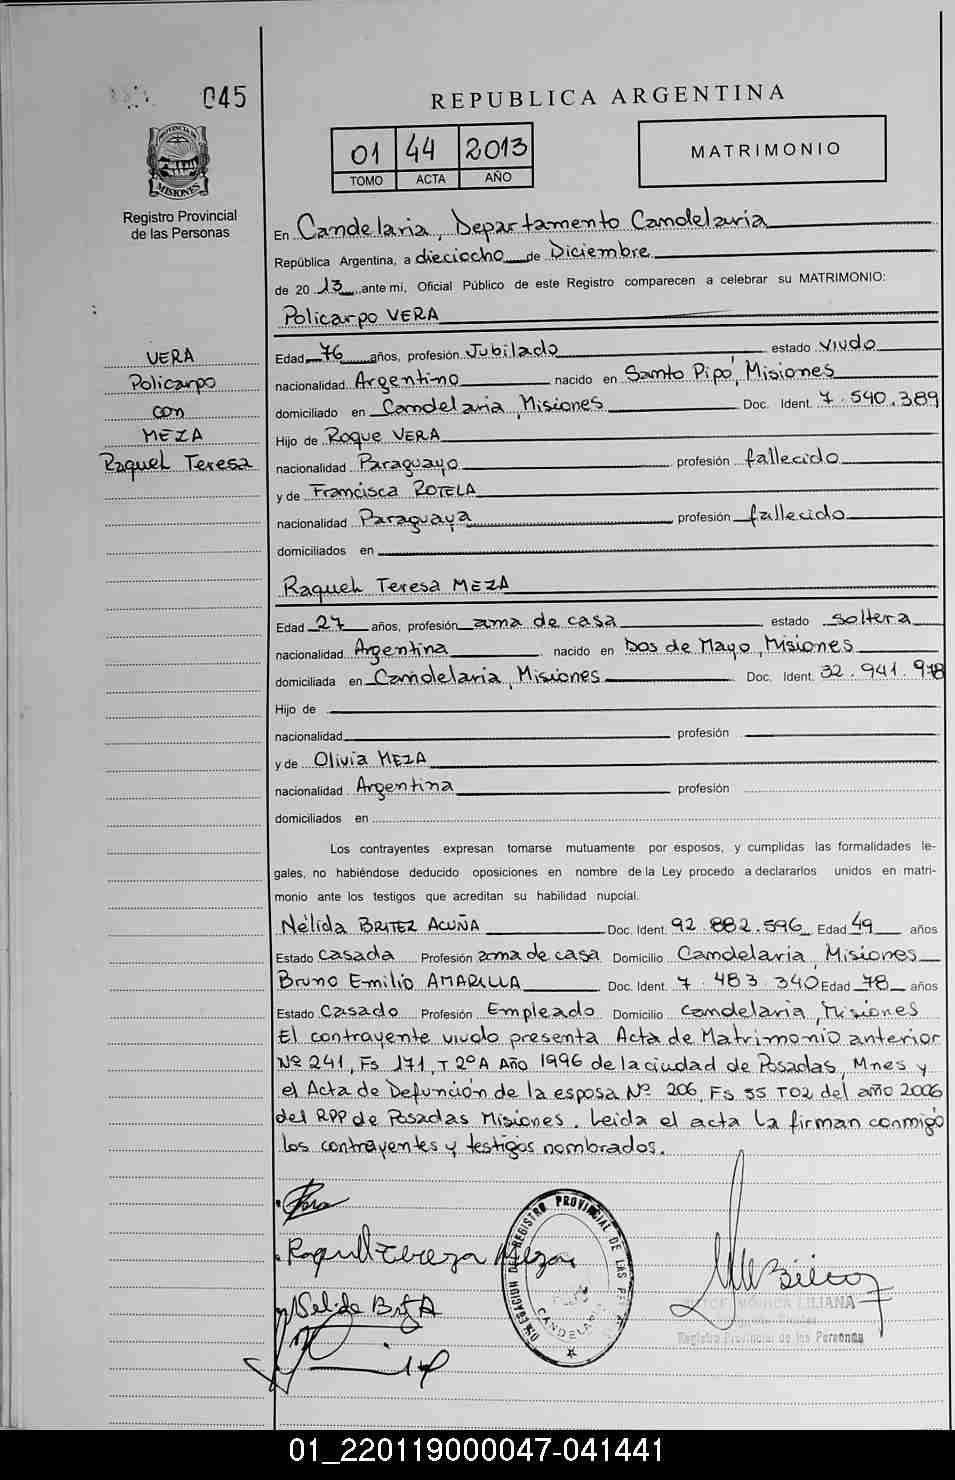 045
REPUBLICA ARGENTINA
01 44 2013
TOMO ACTA AÑO
MATRIMONIO
PROVINCIA DE
MISIONES
Registro Provincial
de las Personas
VERA
Policarpo
con
MEZA
Raquel Teresa
En Candelaria, Departamento Candelaria
República Argentina, a dieciocho de Diciembre
de 20 13 ante mi, Oficial Público de este Registro comparecen a celebrar su MATRIMONIO:
Policarpo VERA
Edad 76 años, profesión Jubilado estado viudo
nacionalidad Argentino nacido en Santo Pipó, Misiones
domiciliado en Candelaria, Misiones Doc. Ident. 7.540.389
Hijo de Roque VERA
nacionalidad Paraguayo profesión fallecido
y de Francisca ROTELA
nacionalidad Paraguaya profesión fallecido
domiciliados en
Raquel Teresa MEZA
Edad 27 años, profesión ama de casa estado soltera
nacionalidad Argentina nacido en Dos de Mayo, Misiones
domiciliada en Candelaria, Misiones Doc. Ident. 32.941.978
Hijo de
nacionalidad profesión
y de Olivia MEZA
nacionalidad Argentina profesión
domiciliados en
Los contrayentes expresan tomarse mutuamente por esposos, y cumplidas las formalidades le-
gales, no habiéndose deducido oposiciones en nombre de la Ley procedo a declararlos unidos en matri-
monio ante los testigos que acreditan su habilidad nupcial.
Nélida BRITEZ ACUÑA Doc. Ident. 92.882.596 Edad 49 años
Estado casada Profesión ama de casa Domicilio Candelaria, Misiones
Bruno Emilio AMARILLA Doc. Ident. 7.483.340 Edad 78 años
Estado Casado Profesión Empleado Domicilio Candelaria, Misiones
El contrayente viudo presenta Acta de Matrimonio anterior
Nº 241, Fs 171, T 2ºA Año 1996 de la ciudad de Posadas, Mnes y
el Acta de Defunción de la esposa Nº 206, Fs 55 T02 del año 2006
del RPP de Posadas Misiones. Leida el acta la firman conmigo
los contrayentes y testigos nombrados.
Raquel Tereza Meza
Nelida
DELEGACION DEL REGISTRO PROVINCIAL DE LAS
CANDELARIA
MONICA LILIANA
Registro Provincial de las Personas
01_220119000047-041441